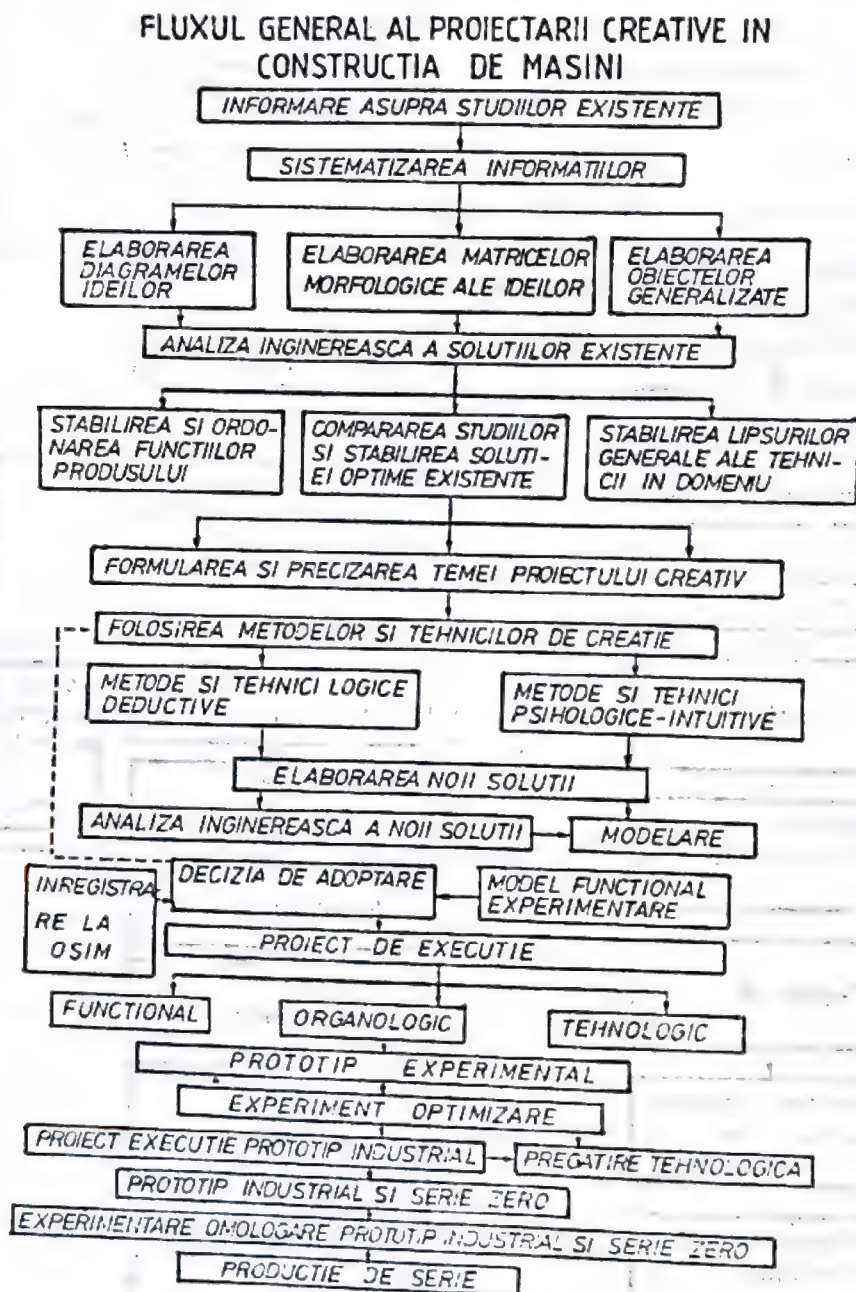 FLUXUL GENERAL AL PROIECTARII CREATIVE IN
CONSTRUCTIA DE MASINI
INFORMARE ASUPRA STUDIILOR EXISTENTE
SISTEMATIZAREA INFORMATIILOR
ELABORAREA
DIAGRAMELOR
IDEILOR
ELABORAREA MATRICELOR
MORFOLOGICE ALE IDEILOR
ELABORAREA
OBIECTELOR
GENERALIZATE
ANALIZA INGINEREASCA A SOLUTIILOR EXISTENTE
STABILIREA SI ORDO-
NAREA FUNCTIILOR
PRODUSULUI
COMPARAREA STUDIILOR
SI STABILIREA SOLUTI-
EI OPTIME EXISTENTE
STABILIREA LIPSURILOR
GENERALE ALE TEHNI-
CII IN DOMENIU
FORMULAREA SI PRECIZAREA TEMEI PROIECTULUI CREATIV
FOLOSIREA METODELOR SI TEHNICILOR DE CREATIE
METODE SI TEHNICI LOGICE
DEDUCTIVE
METODE SI TEHNICI
PSIHOLOGICE-INTUITIVE
ELABORAREA NOII SOLUTII
ANALIZA INGINEREASCA A NOII SOLUTII
MODELARE
INREGISTRA
RE LA
OSIM
DECIZIA DE ADOPTARE
MODEL FUNCTIONAL
EXPERIMENTARE
PROIECT DE EXECUTIE
FUNCTIONAL
ORGANOLOGIC
TEHNOLOGIC
PROTOTIP EXPERIMENTAL
EXPERIMENT OPTIMIZARE
PROIECT EXECUTIE PROTOTIP INDUSTRIAL
PREGATIRE TEHNOLOGICA
PROTOTIP INDUSTRIAL SI SERIE ZERO
EXPERIMENTARE OMOLOGARE PROTOTIP INDUSTRIAL SI SERIE ZERO
PRODUCTIE DE SERIE